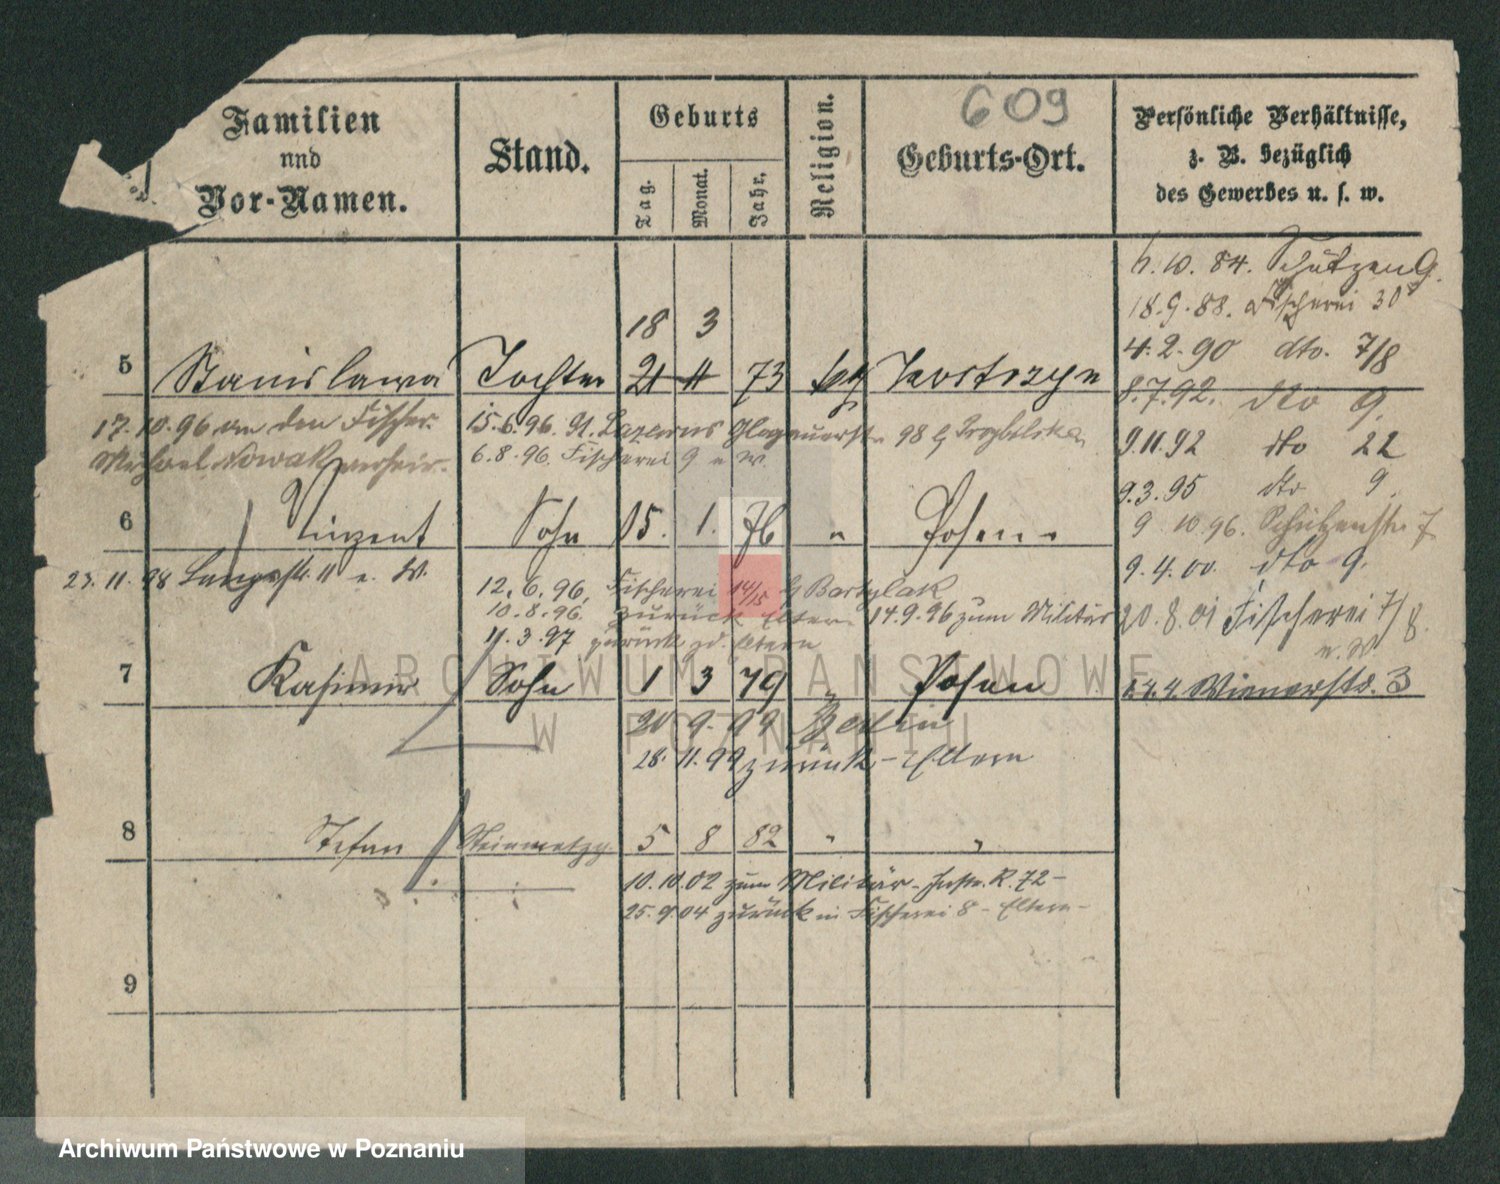 609
Familien
und
Vor-Namen.
Stand.
Geburts
Tag.
Monat.
Jahr.
Religion.
Geburts-Ort.
Persönliche Verhältnisse,
z. B. bezüglich
des Gewerbes u. s. w.
6.10.84. Schützen 9.
18.9.88. Fischerei 30
4.2.90 dto. 7/8
8.7.92. dto 9.
9.11.92 dto 22
9.3.95 dto 9.
9 10.96. Schützenstr. 7
9.4.00. dto 9.
20.8.01 Fischerei 7/8
n. W.
Wienerstr. 3
18 3
5 Stanislawa Tochter 21 11 73 kath
17.10.96 an den Fischer
Michael Nowak verheir.
15.6.96. St. Lazarus Glogauerstr. 98
6.8.96. Fischerei 9 n. W.
6 Vinzent Sohn 15. 1. 76 " Posen
23.11.98 Langestr. 11 n. W.
12.6.96, Fischerei 14/15 b Bartylak
10.8.96. zurück Eltern 14.9.96 zum Militär
11.3.97 zurück zd. Eltern
7 Kasimir Sohn 1 3 79 " Posen
20 9. 99 Berlin
28. 11. 99 zurück - Eltern
8 Stefan Steinmetzg. 5 8 82 " "
10.10.02 zum Militär - Inftr. R. 72 -
25.9.04 zurück in Fischerei 8 - Eltern -
9
ARCHIWUM PAŃSTWOWE
W POZNANIU
Archiwum Państwowe w Poznaniu